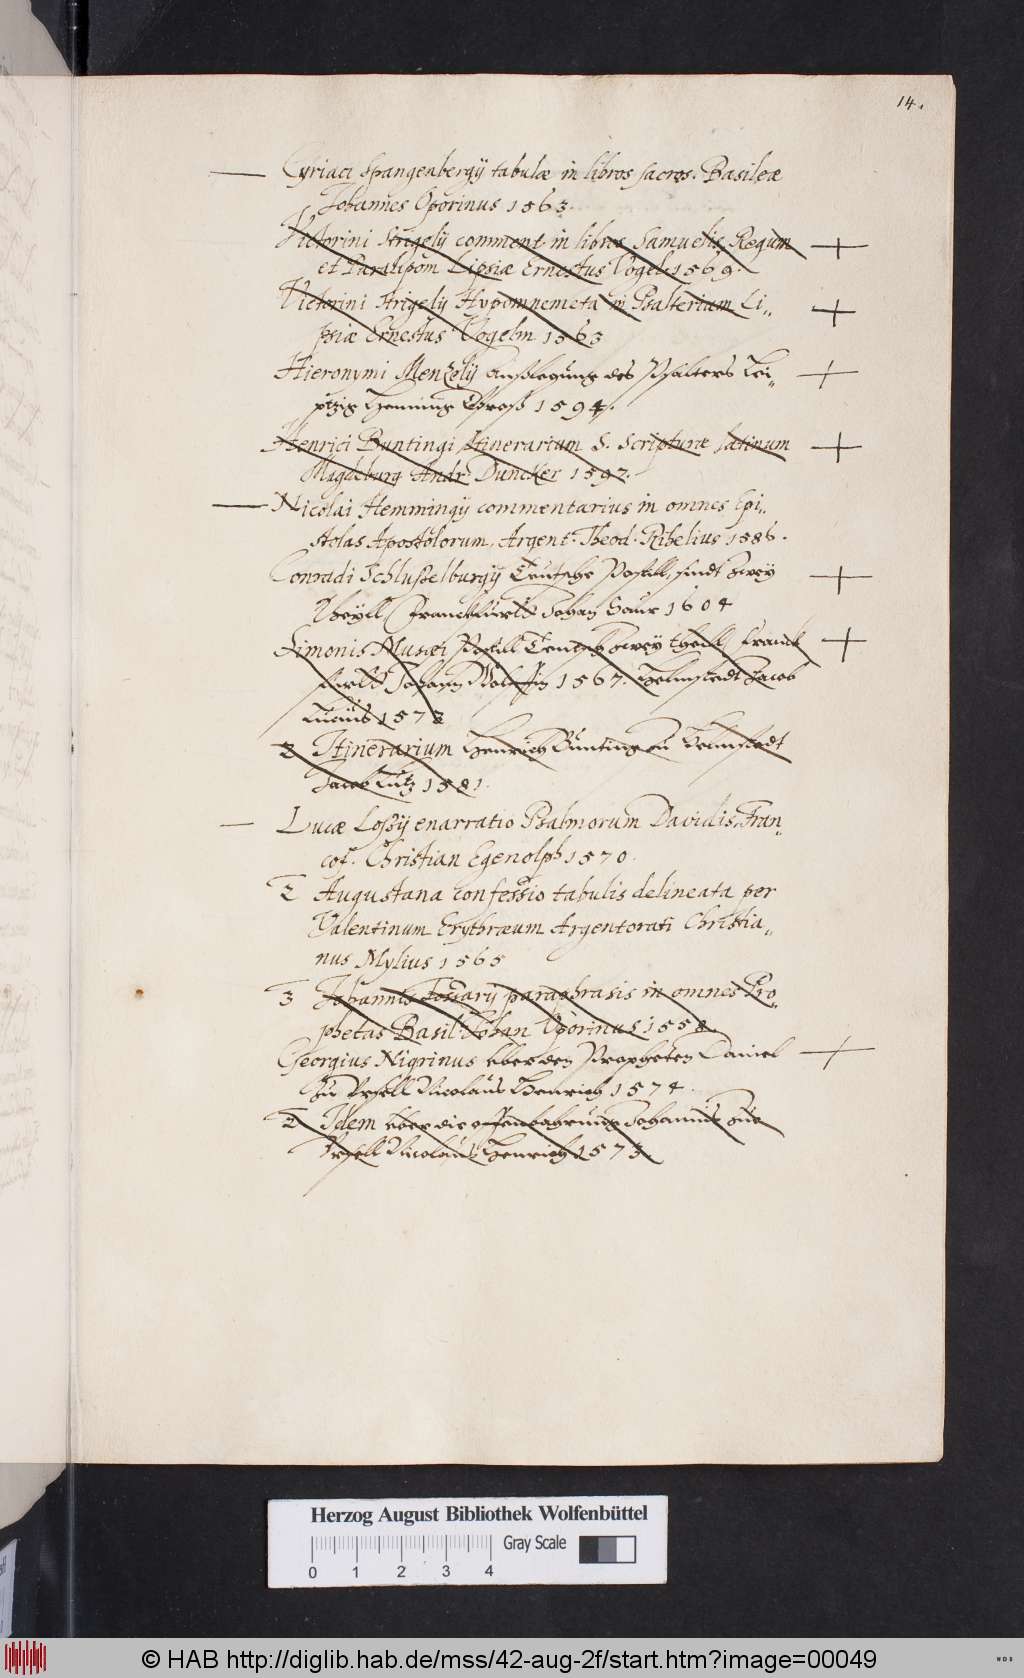 14.
Cyriaci Spangenbergij tabulæ in libros sacros. Basileæ
Johannes Oporinus 1563.
Victorini Strigelij comment. in libros Samuelis, Regum
et Paralipom Lipsiæ Ernestus Vogel. 1569.
Victorini Strigelij Hypomnemeta in Psalterium Li„
psiæ Ernestus Vogelin 1563
Hieronymi Mentzelij außlegung des Psalters Lei„
ptzig Henning Groß 1594.
Henrici Buntingi Itinerarium S. Scripturæ latinum
Magdeburg Andr. Duncker 1597.
Nicolai Hemmingij commentarius in omnes Epi„
stolas Apostolorum, Argent. Theod. Ribelius 1586.
Conradi Schlußelburgij Teutsche Postill, sindt zwey
Theyll Franckfurtt Johan Saur 1604
Simonis Musæi Postill Teutsch zwey theill, Franck
furtt Johann Wolff in 1567. Helmstedt Jacob
Lucius 1573
2 Itinerarium Henrich Bunting zu Helmstedt
Jacob Lutz 1581.
Lucæ Loßij enarratio Psalmorum Davidis, Fran„
cof. Christian Egenolph 1570.
2 Augustana confessio tabulis delineata per
Valentinum Erythræum Argentorati Christia„
nus Mylius 1565
3 Johannis paraphrasis in omnes Pro„
phetas Basil. Johan Oporinus 1558.
Georgius Nigrinus uber den Propheten Daniel
Zu Ursell Nicolaus Henrich 1574.
2 Idem uber die offenbahrung Johannis zue
Ursell Nicolaus Henrich 1573.
Herzog August Bibliothek Wolfenbüttel
Gray Scale
0 1 2 3 4
© HAB http://diglib.hab.de/mss/42-aug-2f/start.htm?image=00049